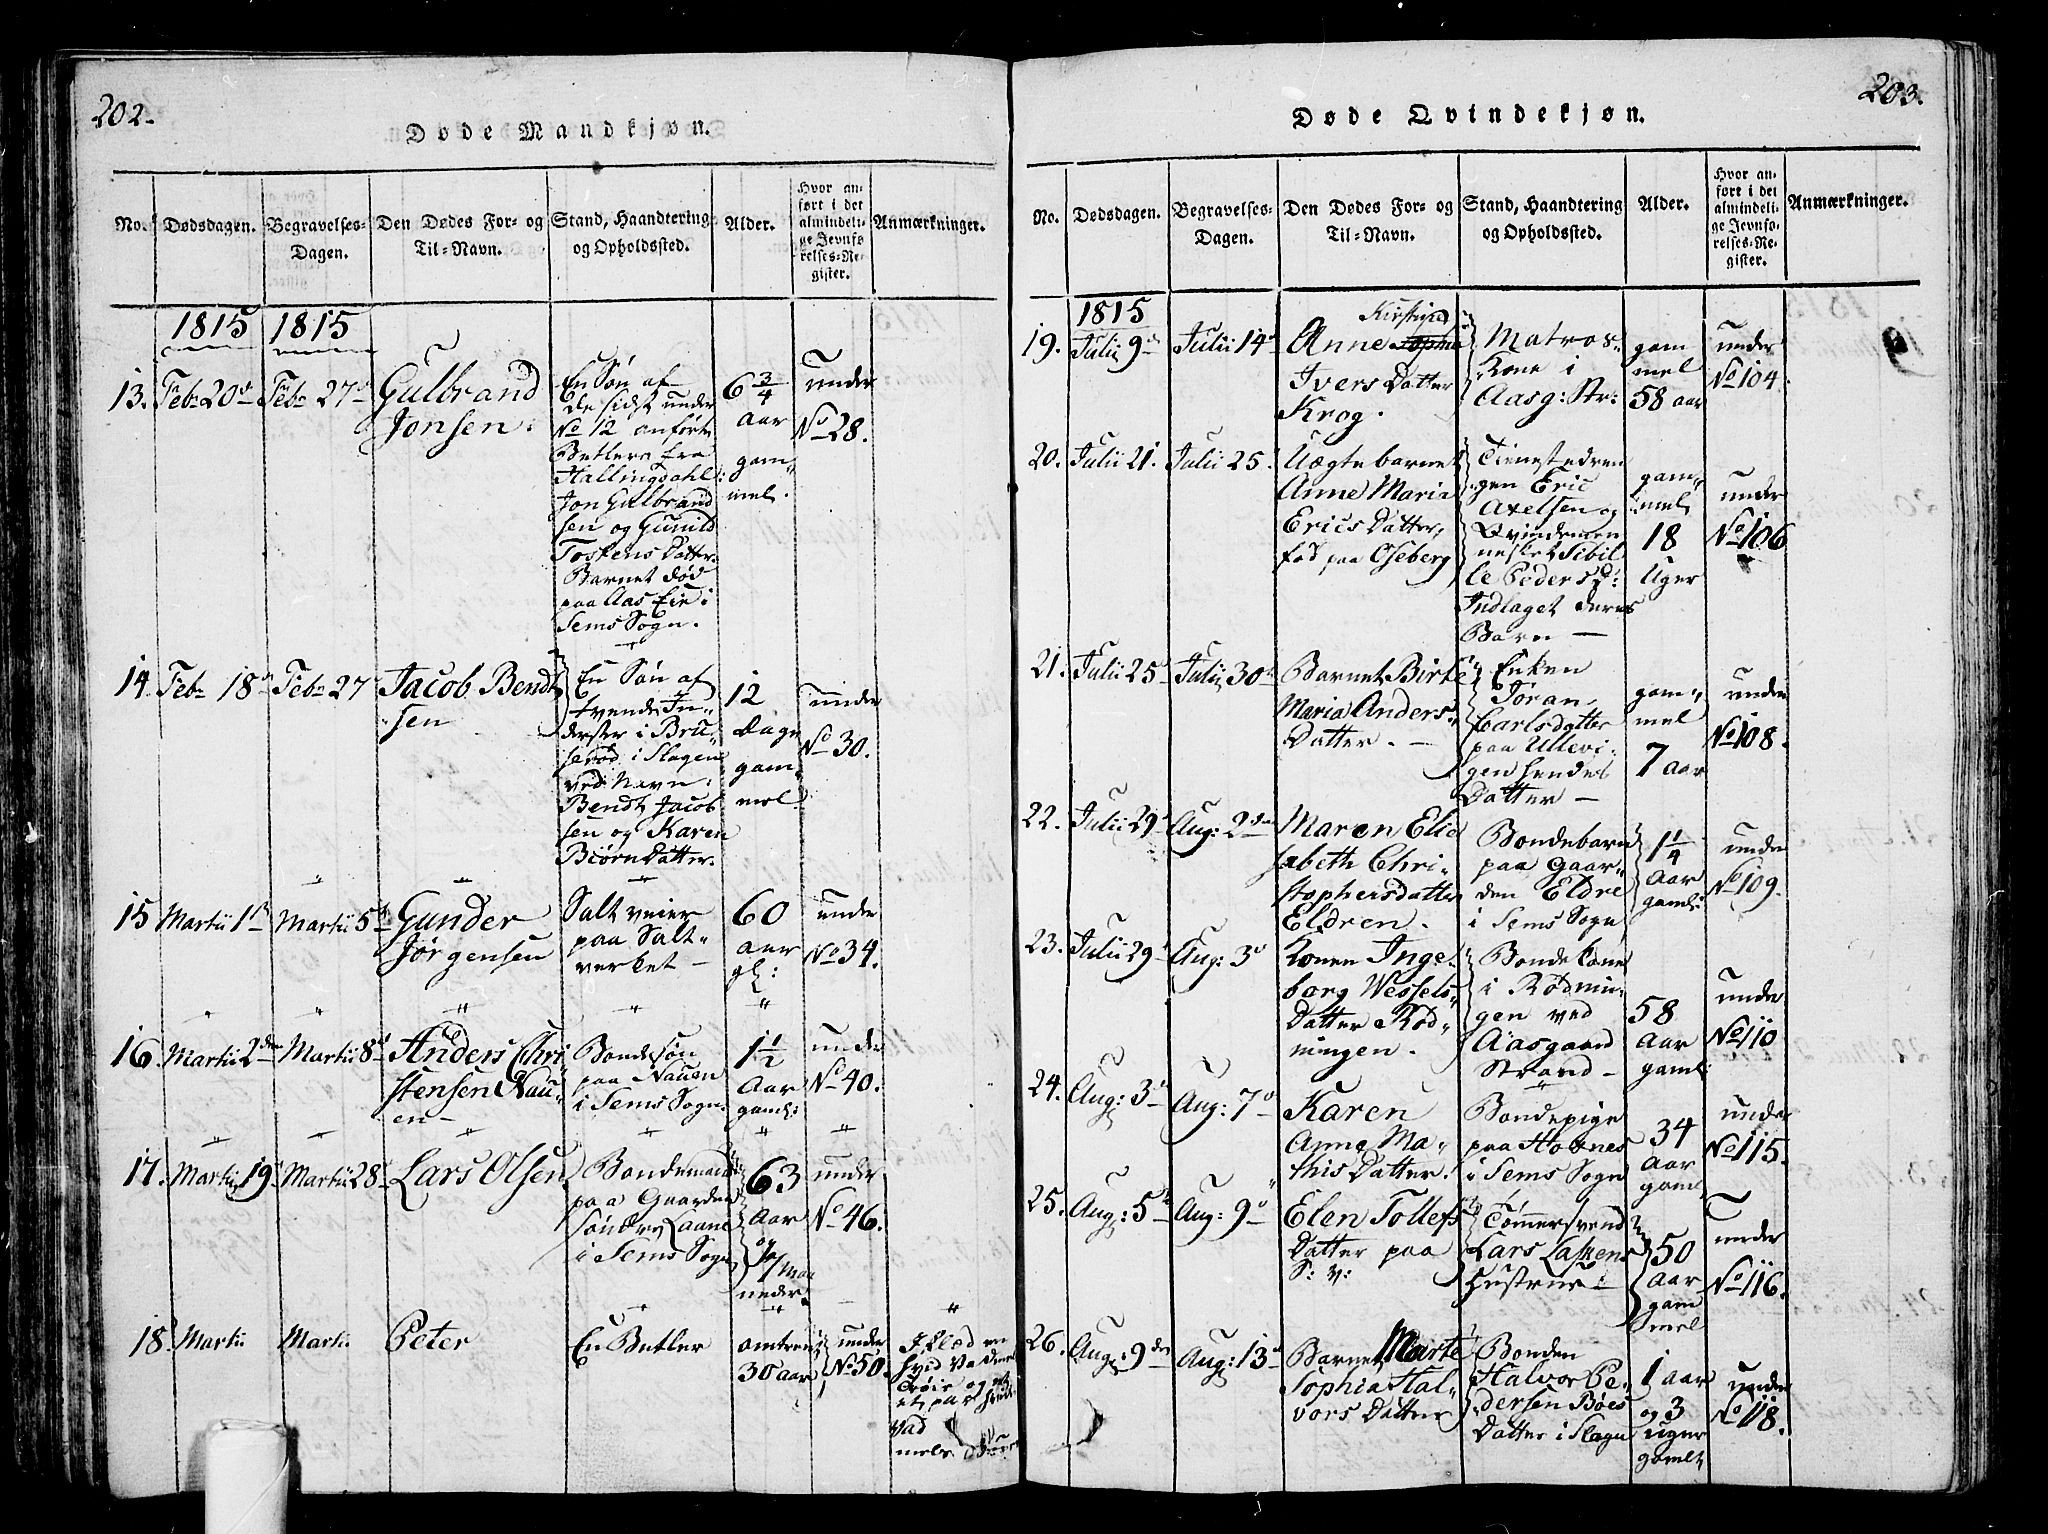 202.
Døde Mandkjøn.
No.
Dødsdagen.
Begravelses-
Dagen.
Den Dødes For- og
Til-Navn.
Stand, Haandtering
og Opholdssted.
Alder.
Hvor an-
ført i det
almindeli-
ge Jevnfø
relses-Re-
gister.
Anmærkninger.
1815
1815
13.
Feb: 20
Feb: 27
Gulbrand
Jonsen.
En Søn af
de sidst under
No 12 anførte
Betlere fra
Hallingdahl:
Jon Gulbrand
sen og Gunild
Tostens Datter.
Barnet død
paa Aas Eie i
Sems Sogn.
6 3/4
Aar
gam„
mel.
under
No 28.
14.
Feb: 18
Feb: 27
Jacob Bendt
sen
En Søn af
tvende In„
derster i Bru„
serød i Slagen
ved Navn:
Bendt Jacob
sen og Karen
Biørn Datter.
12
Dage
gam„
mel.
under
No 30.
15
Martii 1
Martii 5
Gunder
Jørgensen
Saltveier
paa Salt„
verket –
60
aar
gl:
under
No 34.
16.
Martii 2den
Martii 8
Anders Chri
stensen Nau„
en –
Bondesøn
paa Nauen
i Sems Sogn.
1 1/2
Aar
gaml:
under
No 40.
17.
Martii 19
Martii 28
Lars Olsen
Bondemand
paa Gaarden
søndre
i Sems Sogn
63
Aar
og
Maa
neder.
under
No 46.
18.
Martii
Martii
Peter
En Betler
omtrent
30 aar
under
No 50.
Iklæd en
hvid Vadmel
Trøie og et
par
Vad
mels
203.
Døde Qvindekjøn.
No.
Dødsdagen.
Begravelses-
Dagen.
Den Dødes For- og
Til-Navn.
Stand, Haandtering
og Opholdssted.
Alder.
Hvor an-
ført i det
almindeli-
ge Jevnfø-
relses-Re-
gister.
Anmærkninger.
1815
19.
Julii 9
Julii 14
Kirstine
Anne Sophia
Ivers Datter
Krog.
Matros„
Kone i
Aasg: Str:
gam
mel
58 aar
under
No 104.
20.
Julii 21.
Julii 25.
Uægte barnet
Anne Maria
Erics Datter,
fød paa Oseberg
Tienestedren
gen Eric
Axelsen og
Qvindemen
nesket Sibil
le Peders D:
Indlaget deres
Barn –
gam„
mel
18
Uger
under
No 106
21.
Julii 25
Julii 30
Barnet Birte
Maria Anders„
Datter. –
Enken
Joran
Carlsdatter
paa Ullevi„
gen hendes
Datter –
gam„
mel
7 aar
under
No 108.
22.
Julii 29
Aug: 2den
Maren Elie
sabeth Chri„
stophersdatter
Eldren.
Bondebarn
paa Gaar„
den Eldre
i Sems Sogn
1 1/4
Aar
gaml:
under
No 109.
23.
Julii 29
Aug: 3
Konen Inge„
borg Wessels„
Datter Rød„
ningen.
Bondekone
i Rødnin„
gen ved
Aasgaard
Strand –
58
Aar
gaml:
under
No 110
24.
Aug: 3
Aug: 7
Karen
Anne Ma„
this Datter.
Bondepige
paa Hobnes
i Sems Sogn
34
Aar
gaml
under
No 115.
25.
Aug: 5
Aug: 9
Elen Tollefs
Datter paa
S: V:
Tømmersvend
Lars Lassens
Hustrue –
50
Aar
gam
mel
under
No 116.
26.
Aug: 9de
Aug: 13
Barnet Marte
Sophia Hal„
vors Datter
Bonden
Halvor Pe„
dersen Bøes
Datter i Slagn
1 aar
og 3
uger
gamlt
under
No 118.